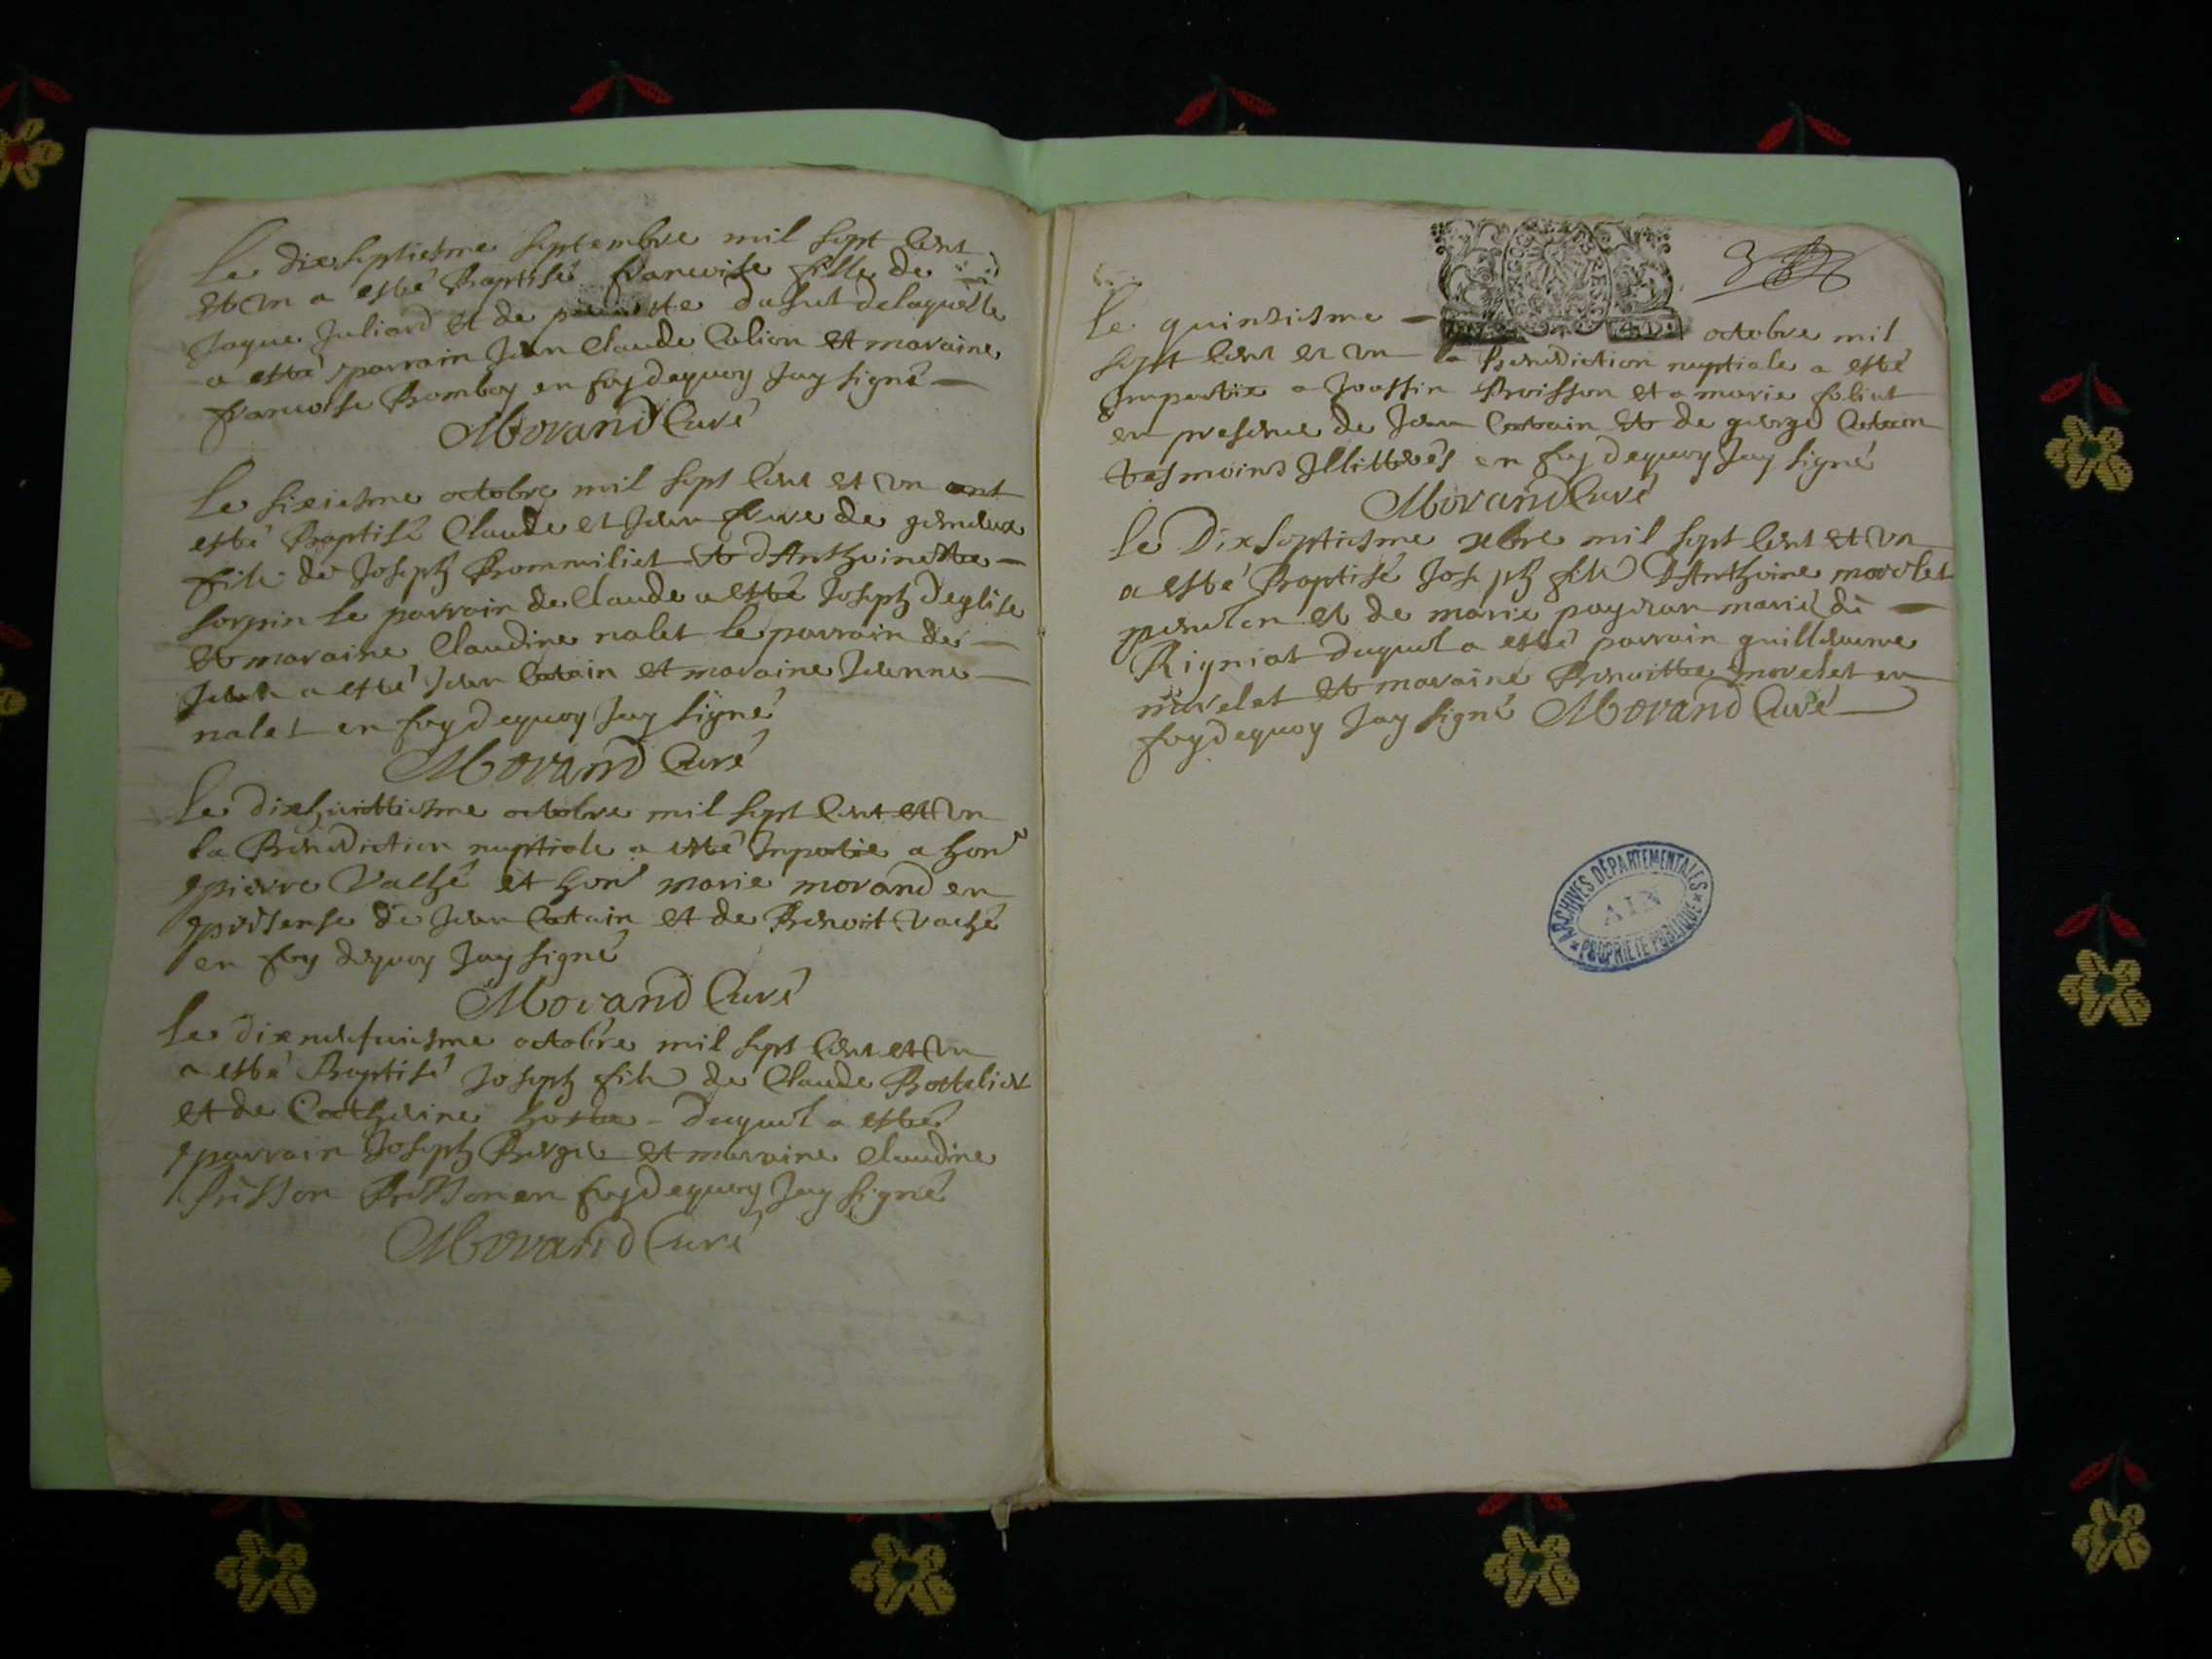 Le dixseptiesme septembre mil sept cent
et un a esté Baptisé francoise fille de
Jaque Juliand et de dufut delaquelle
a esté parrain Jean Claude Calion et maraine
francoise Bomboy en foy dequoy Jay signé
Morand Curé
Le sixiesme octobre mil sept cent et un ont
esté Baptisé Claude et Jean frere de gemeaux
fils de Joseph Brommiliet et dAnthoinette
sorpin le parrain de Claude a esté Joseph deglise
et maraine Claudine nalet le parrain de
Jean a esté Jean Catain et maraine Jeanne
nalet en foy dequoy Jay signé
Morand Curé
Le dixhuittiesme octobre mil sept cent et un
la Benediction nuptiale a esté Inpartie a hon
pierre Vaché et hon marie morand en
presense de Jean Catain et de Benoit Vaché
en foy dequoy Jay signé
Morand Curé
Le dixneufuiesme octobre mil sept cent et un
a esté Baptisé Joseph fils de Claude Bottelier
et de Catherine hoste duquel a esté
parrain Joseph Berger et marraine Claudine
Brisson en foy dequoy Jay signé
Morand Curé
Le quinsiesme octobre mil
sept cent et un la Benediction nuptiale a esté
Impartie a Joassin Broisson et a marie foliat
en presence de Jean Catain et de george Catain
tesmoins Illittrés en foy dequoy Jay signé
Morand Curé
Le Dixseptiesme xbre mil sept cent et un
a esté Baptisé Joseph fils dAnthoine morelet
et de marie paysan marié de
Rigniat duquel a esté parrain guilleaume
morelet et maraine Benoitte morelet en
foy dequoy Jay signé Morand Curé
ARCHIVES DÉPARTEMENTALES
AIN
PROPRIÉTÉ PUBLIQUE